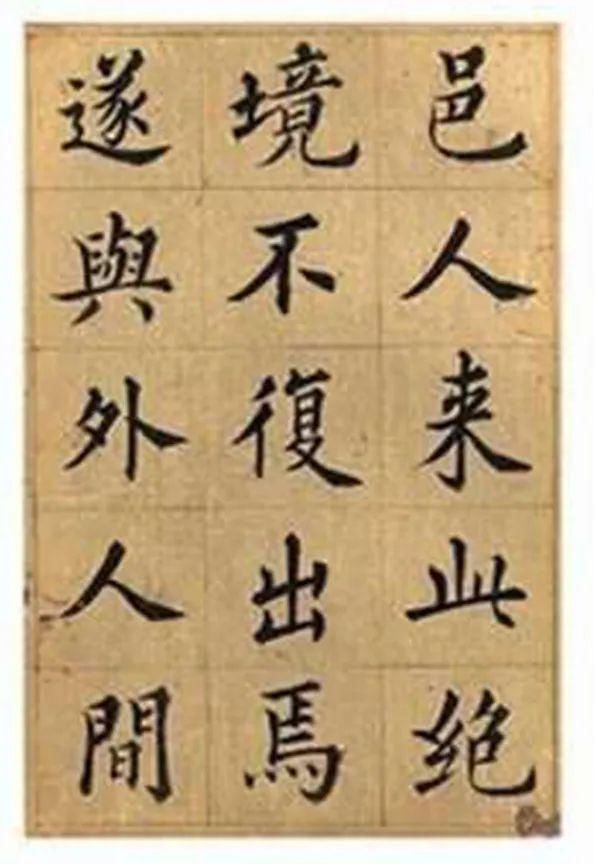 邑人来此绝
境不復出焉
遂與外人間